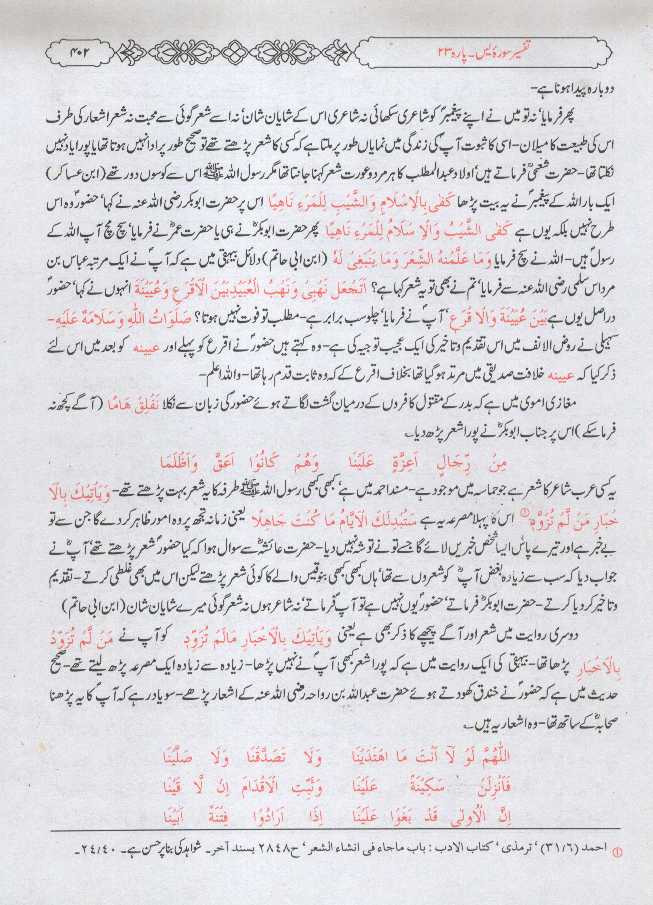 تفسیر سورۂ یس۔ پارہ ۲۳
۴۰۲
دوبارہ پیدا ہونا ہے-
پھر فرمایا' نہ تو میں نے اپنے پیغمبرؐ کو شاعری سکھائی نہ شاعری اس کے شایان شان' نہ اسے شعر گوئی سے محبت نہ شعر اشعار کی طرف
اس کی طبیعت کا میلان- اسی کا ثبوت آپؐ کی زندگی میں نمایاں طور پر ملتا ہے کہ کسی کا شعر پڑھتے تھے تو صحیح طور پر ادا نہیں ہوتا تھا یا پورا یاد نہیں
نکلتا تھا- حضرت شعبیؒ فرماتے ہیں' اولاد عبدالمطلب کا ہر مرد و عورت شعر کہنا جانتا تھا مگر رسول اللہ ﷺ اس سے کوسوں دور تھے (ابن عساکر)
ایک بار اللہ کے پیغمبرؐ نے یہ بیت پڑھا كَفٰى بِالْاِسْلَامِ وَالشَّيْبِ لِلْمَرْءِ نَاهِيًا اس پر حضرت ابوبکر رضی اللہ عنہ نے کہا' حضورؐ وہ اس
طرح نہیں بلکہ یوں ہے كَفَى الشَّيْبُ وَالْاِ سْلَامُ لِلْمَرْءِ نَاهِيًا پھر حضرت ابوبکرؓ نے ہی یا حضرت عمرؓ نے فرمایا' سچ مچ آپ اللہ کے
رسول ہیں- اللہ نے سچ فرمایا وَمَا عَلَّمْنٰهُ الشِّعْرَ وَمَا يَنْبَغِىْ لَهٗ (ابن ابی حاتم) دلائل بیہقی میں ہے کہ آپؐ نے ایک مرتبہ عباس بن
مرداس سلمی رضی اللہ عنہ سے فرمایا' تم نے بھی تو یہ شعر کہا ہے؟ اَتَجْعَلُ نَهْبِىْ وَنَهْبَ الْعُبَيْدِبَيْنَ الْاَقْرَعِ وَعُيَيْنَةَ انہوں نے کہا' حضورؐ
دراصل یوں ہے بَيْنَ عُيَيْنَةَ وَالْاَ قْرَعِ' آپؐ نے فرمایا' چلو سب برابر ہے- مطلب تو فوت نہیں ہوتا؟ صَلَوَاتُ اللّٰهِ وَسَلَامُهٗ عَلَيْهِ-
سہیلی نے روض الانف میں اس تقدیم و تاخیر کی ایک عجیب توجیہ کی ہے- وہ کہتے ہیں حضورؐ نے اقرع کو پہلے اور عیینہ کو بعد میں اس لئے
ذکر کیا کہ عیینہ خلافت صدیقی میں مرتد ہو گیا تھا بخلاف اقرع کے کہ وہ ثابت قدم رہا تھا- واللہ اعلم-
مغازی اموی میں ہے کہ بدر کے مقتول کافروں کے درمیان گشت لگاتے ہوئے حضورؐ کی زبان سے نکلا نَفْلِقُ هَامًا (آگے کچھ نہ
فرما سکے) اس پر جناب ابوبکرؓ نے پورا شعر پڑھ دیا۔
مِنْ رِّجَالٍ اَعِزَّةٍ عَلَيْنَا وَهُمْ كَانُوْا اَعَقَّ وَاَظْلَمَا
یہ کسی عرب شاعر کا شعر ہے جو حماسہ میں موجود ہے- مسند احمد میں ہے' کبھی کبھی رسول اللہ ﷺ طرفہ کا یہ شعر بہت پڑھتے تھے- وَيَاْتِيْكَ بِالْاَ
خْبَارِ مَنْ لَّمْ تُزَوِّدِ ① اس کا پہلا مصرعہ یہ ہے سَتُبْدِىْ لَكَ الْاَيَّامُ مَا كُنْتَ جَاهِلًا یعنی زمانہ تجھ پر وہ امور ظاہر کر دے گا جن سے تو
بے خبر ہے اور تیرے پاس ایسا شخص خبریں لائے گا جسے تو نے توشہ نہیں دیا- حضرت عائشہؓ سے سوال ہوا کہ کیا حضورؐ شعر پڑھتے تھے' آپؓ نے
جواب دیا کہ سب سے زیادہ بغض آپؐ کو شعروں سے تھا' ہاں کبھی کبھی بنو قیس والے کا کوئی شعر پڑھتے لیکن اس میں بھی غلطی کرتے- تقدیم
و تاخیر کر دیا کرتے- حضرت ابوبکرؓ فرماتے' حضورؐ یوں نہیں ہے تو آپؐ فرماتے' نہ شاعر ہوں نہ شعر گوئی میرے شایان شان (ابن ابی حاتم)
دوسری روایت میں شعر اور آگے پیچھے کا ذکر بھی ہے یعنی وَيَاْتِيْكَ بِالْاَخْبَارِ مَالَمْ تُزَوِّدِ کو آپؐ نے مَنْ لَّمْ تُزَوِّدْ
بِالْاَخْبَارِ پڑھا تھا- بیہقی کی ایک روایت میں ہے کہ پورا شعر کبھی آپؐ نے نہیں پڑھا- زیادہ سے زیادہ ایک مصرعہ پڑھ لیتے تھے- صحیح
حدیث میں ہے کہ حضورؐ نے خندق کھودتے ہوئے حضرت عبداللہ بن رواحہ رضی اللہ عنہ کے اشعار پڑھے- سو یاد رہے کہ آپؐ کا یہ پڑھنا
صحابہؓ کے ساتھ تھا- وہ اشعار یہ ہیں۔
اللّٰهُمَّ لَوْ لَآ اَنْتَ مَا اهْتَدَيْنَا وَلَا تَصَدَّقْنَا وَلَا صَلَّيْنَا
فَاَنْزِلَنْ سَكِيْنَةً عَلَيْنَا وَثَبِّتِ الْاَقْدَامَ اِنْ لَّا قَيْنَا
اِنَّ الْاُولٰى قَدْ بَغَوْا عَلَيْنَا اِذَا اَرَادُوْا فِتْنَةً اَبَيْنَا
① احمد (۳۱/۶)' ترمذی' کتاب الادب: باب ماجاء فی انشاء الشعر' ح۲۸۴۸ بسند آخر۔ شواہد کی بنا پر حسن ہے۔ ۲۴/۴۰۔